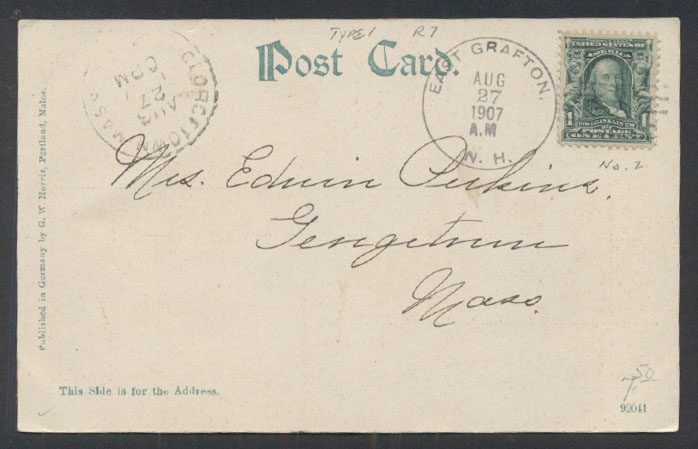 Type 1 R7
Post Card.
GEORGETOWN MASS.
AUG
27
6 PM
EAST GRAFTON,
AUG
27
1907
A.M
N. H.
UNITED STATES OF
AMERICA
1 1
POSTAGE
ONE CENT
No. 2
Mrs. Edwin Perkins.
Georgetown
Mass.
Published in Germany by G. W. Morris, Portland, Maine.
This Side is for the Address.
7.50
92041